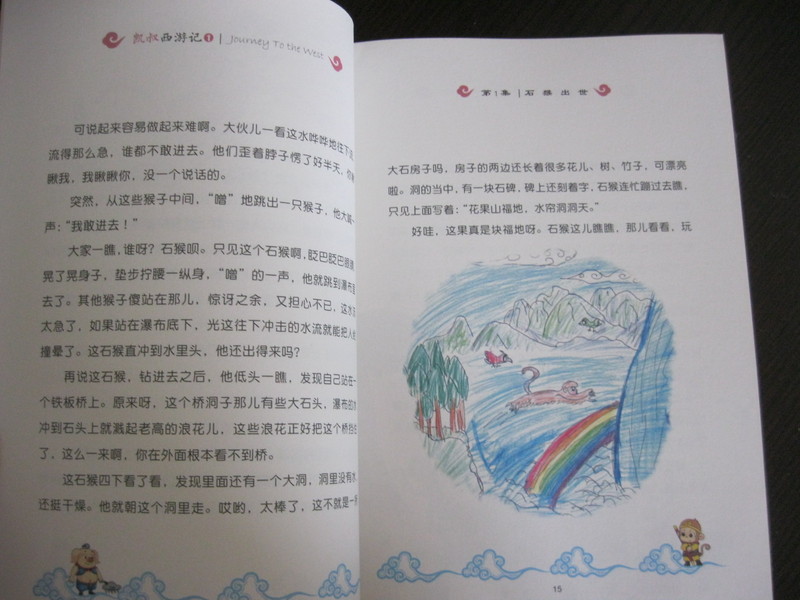 凯叔西游记1 | Journey To the West
可说起来容易做起来难啊。大伙儿一看这水哗哗地往下
流得那么急，谁都不敢进去。他们歪着脖子愣了好半天，你
瞅我，我瞅瞅你，没一个说话的。
突然，从这些猴子中间，“噌”地跳出一只猴子，他大喊一
声：“我敢进去！”
大家一瞧，谁呀？石猴呗。只见这个石猴啊，眨巴眨巴眼睛
晃了晃身子，垫步拧腰一纵身，“噌”的一声，他就跳到瀑布里
去了。其他猴子傻站在那儿，惊讶之余，又担心不已，这水
太急了，如果站在瀑布底下，光这往下冲击的水流就能把人给
撞晕了。这石猴直冲到水里头，他还出得来吗？
再说这石猴，钻进去之后，他低头一瞧，发现自己站在一
个铁板桥上。原来呀，这个桥洞子那儿有些大石头，瀑布的水
冲到石头上就溅起老高的浪花儿，这些浪花正好把这个桥挡住
了，这么一来啊，你在外面根本看不到桥。
这石猴四下看了看，发现里面还有一个大洞，洞里没有水，
还挺干燥。他就朝这个洞里走。哎哟，太棒了，这不就是一所
第1集 | 石猴出世
大石房子吗，房子的两边还长着很多花儿、树、竹子，可漂亮
啦。洞的当中，有一块石碑，碑上还刻着字，石猴连忙蹦过去瞧，
只见上面写着：“花果山福地，水帘洞洞天。”
好哇，这果真是块福地呀。石猴这儿瞧瞧，那儿看看，玩
15